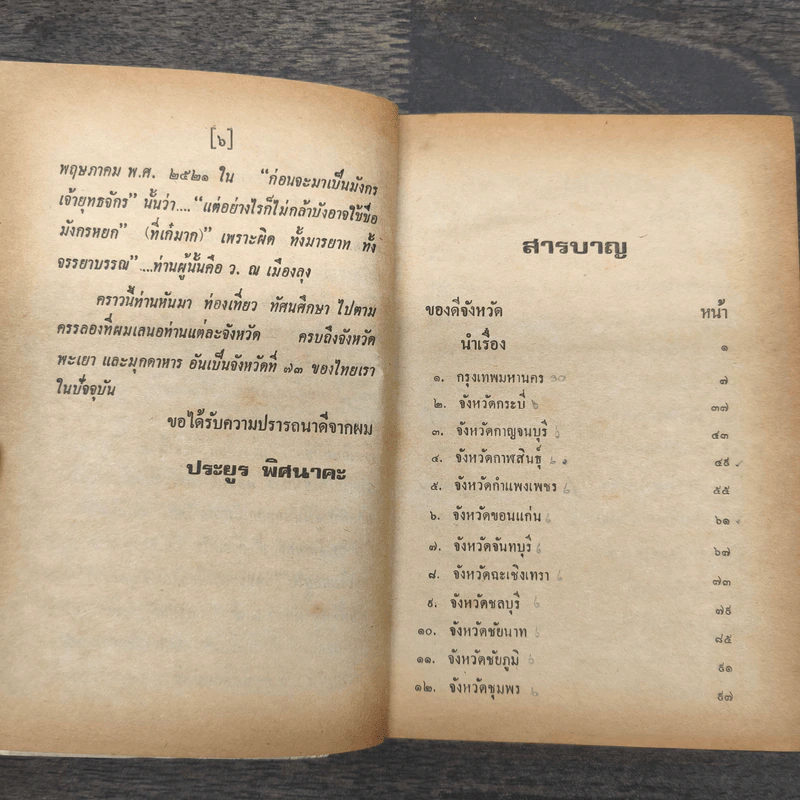 [๖]
พฤษภาคม พ.ศ. ๒๕๒๑ ใน “ก่อนจะมาเป็นมังกร
เจ้ายุทธจักร” นั้นว่า....“แต่อย่างไรก็ไม่กล้าบังอาจใช้ชื่อ
มังกรหยก” (ที่เก๊มาก)” เพราะผิด ทั้งมารยาท ทั้ง
จรรยาบรรณ”....ท่านผู้นั้นคือ ว. ณ เมืองลุง
คราวนี้ท่านหันมา ท่องเที่ยว ทัศนศึกษา ไปตาม
ครรลองที่ผมเสนอท่านแต่ละจังหวัด ครบถึงจังหวัด
พะเยา และมุกดาหาร อันเป็นจังหวัดที่ ๗๓ ของไทยเรา
ในปัจจุบัน
ขอได้รับความปรารถนาดีจากผม
ประยูร พิศนาคะ
สารบาญ
ของดีจังหวัด หน้า
นำเรื่อง ๑
๑. กรุงเทพมหานคร 30 ๗
๒. จังหวัดกระบี่ ๖ ๓๗
๓. จังหวัดกาญจนบุรี ๖ ๔๓
๔. จังหวัดกาฬสินธุ์ ๖ ๔๙
๕. จังหวัดกำแพงเพชร ๖ ๕๕
๖. จังหวัดขอนแก่น ๖ ๖๑
๗. จังหวัดจันทบุรี ๖ ๖๗
๘. จังหวัดฉะเชิงเทรา ๖ ๗๓
๙. จังหวัดชลบุรี ๖ ๗๙
๑๐. จังหวัดชัยนาท ๖ ๘๕
๑๑. จังหวัดชัยภูมิ ๖ ๙๑
๑๒. จังหวัดชุมพร ๖ ๙๗